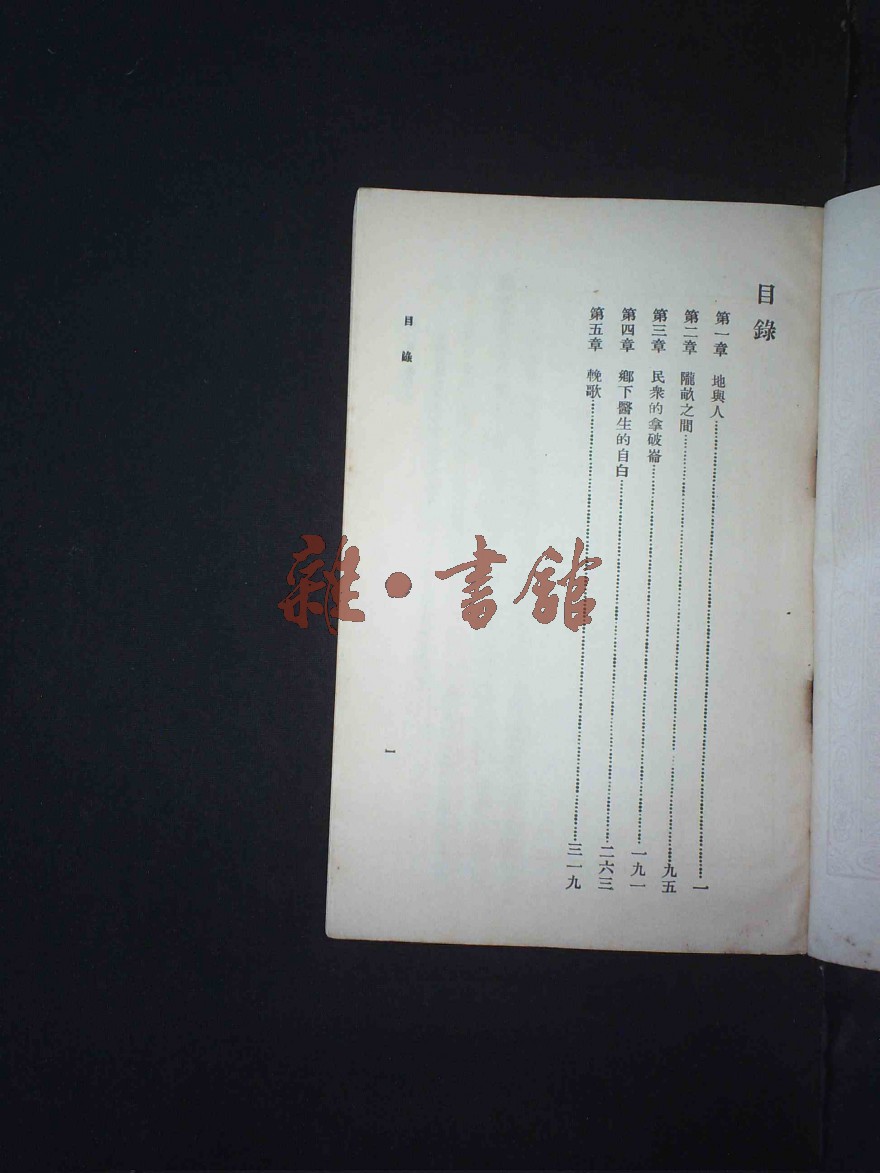 目錄
第一章　地與人……一
第二章　隴畝之間……九五
第三章　民衆的拿破崙……一九一
第四章　鄉下醫生的自白……二六三
第五章　輓歌……三一九
目錄
一
雜·書館